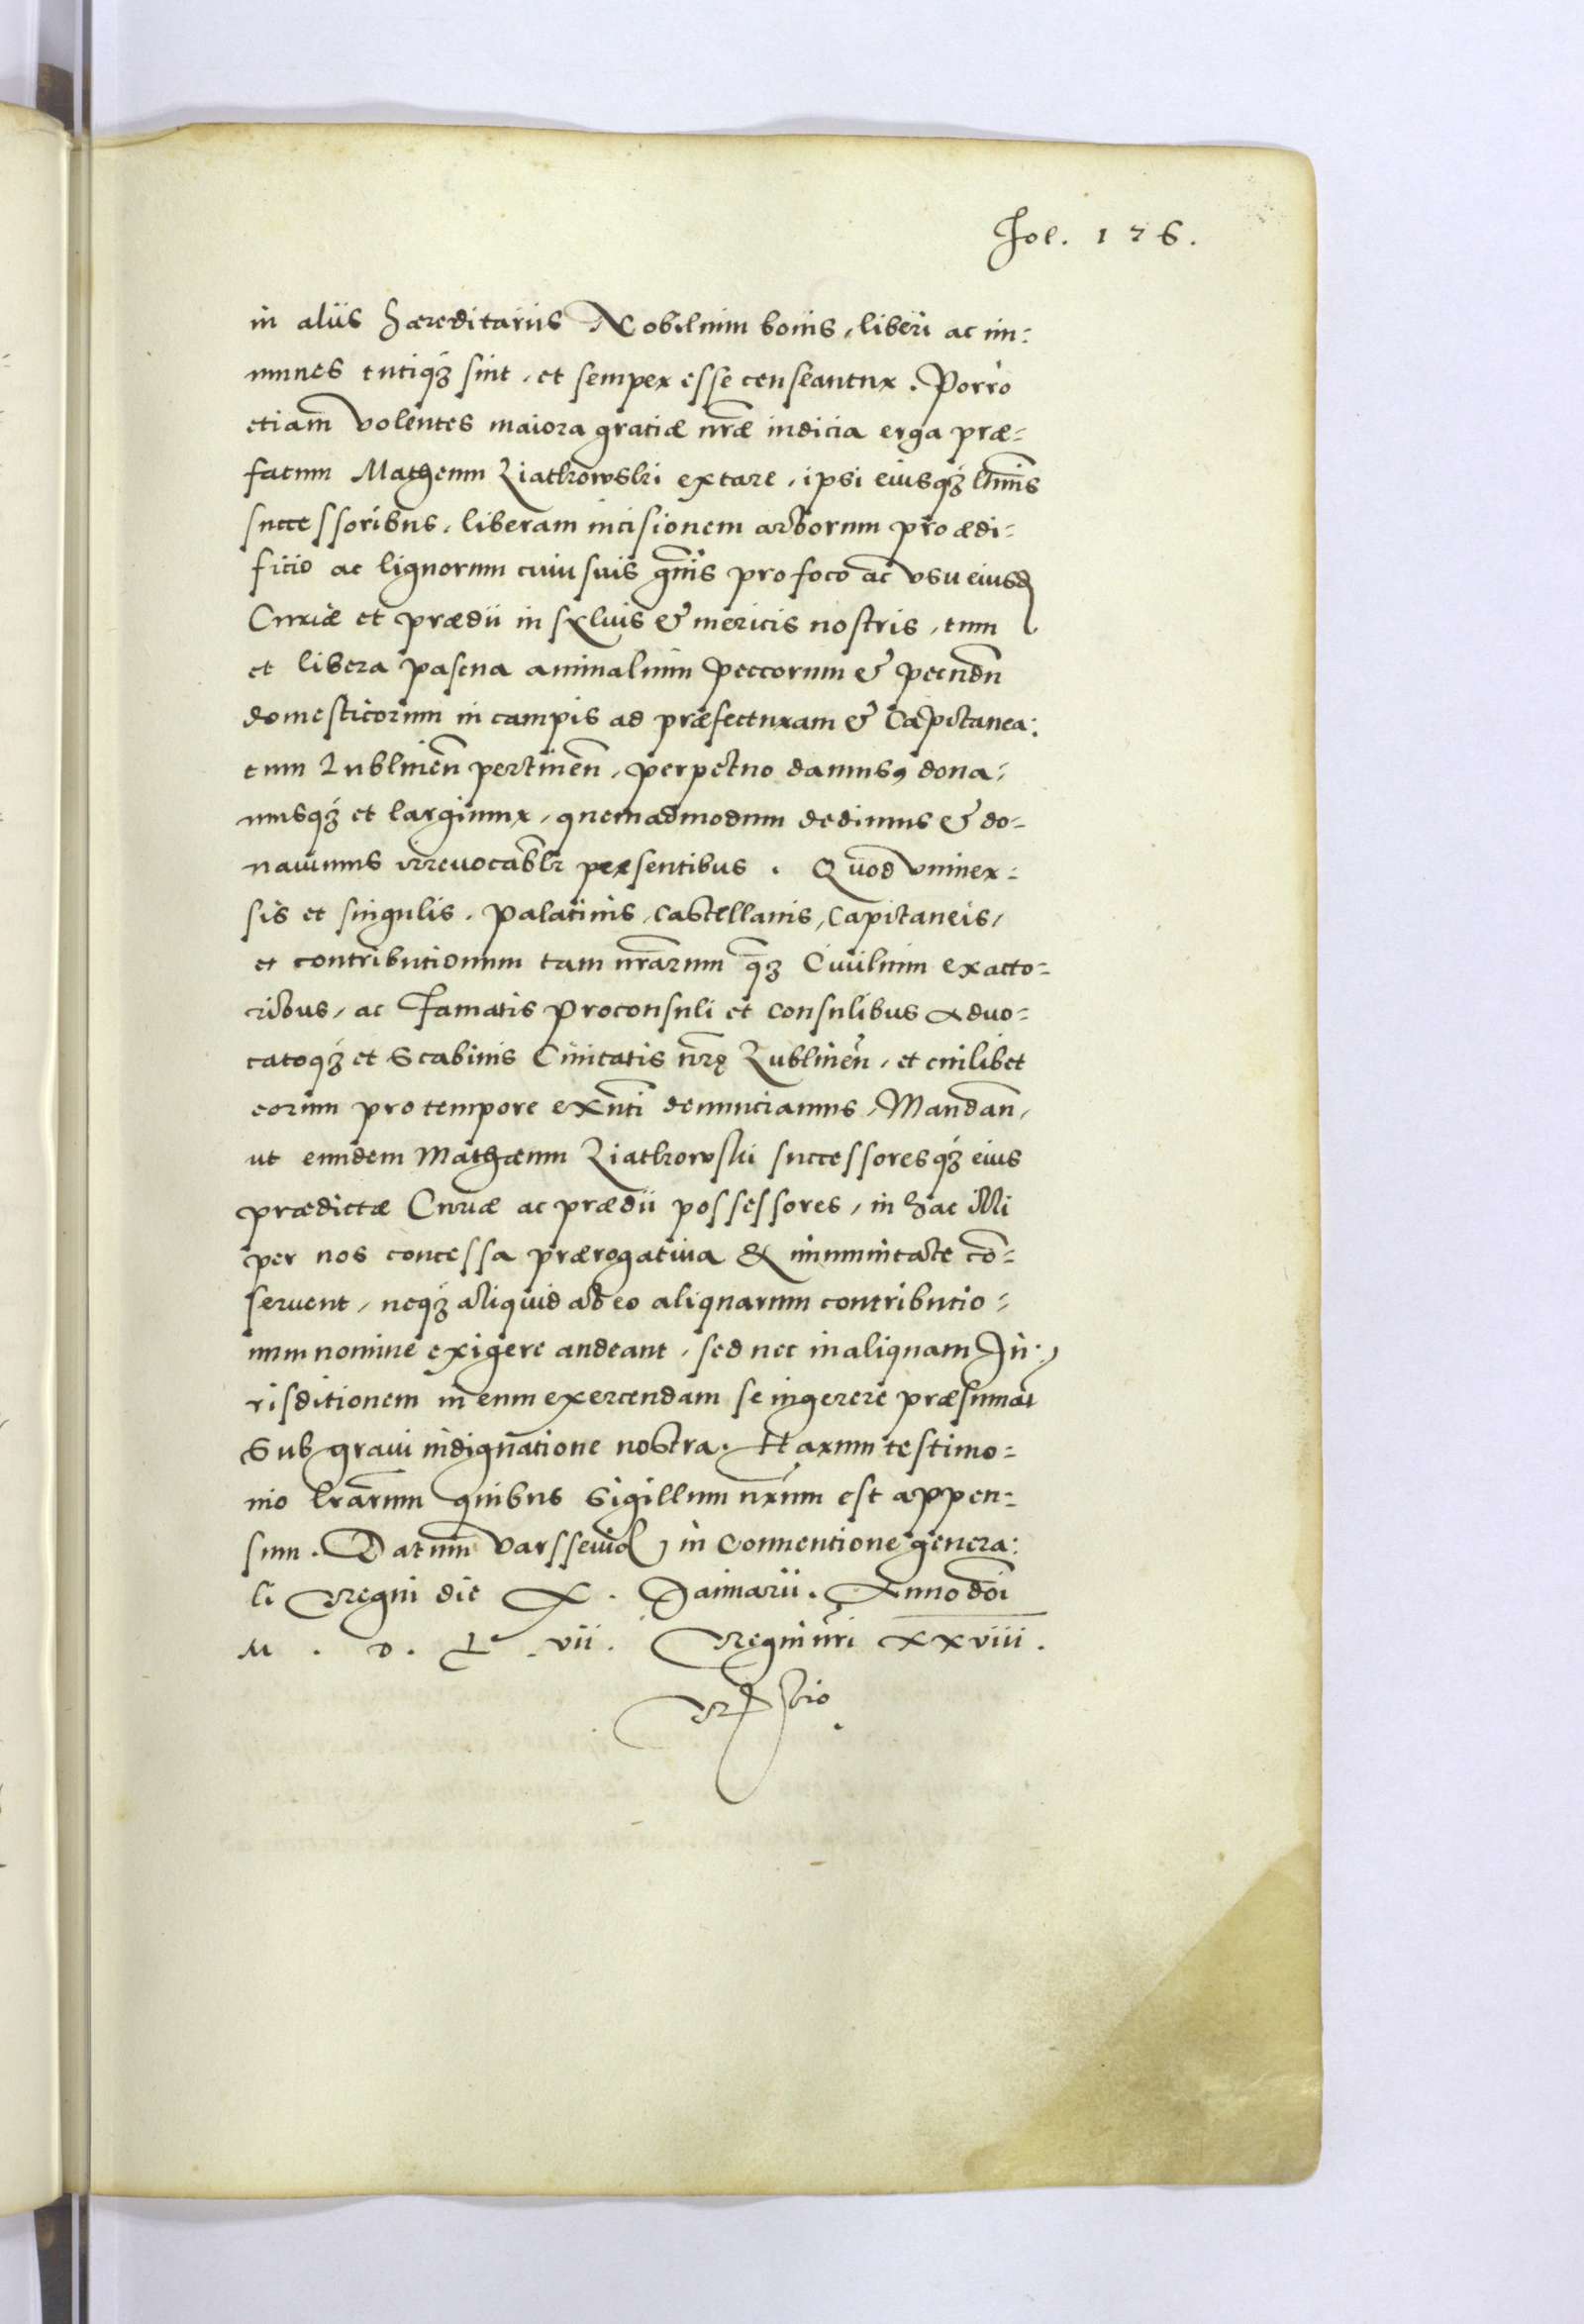 Fol. 176.
in aliis hæreditariis Nobilium bonis, liberi ac im:
munes tutiq3 sint, et semper esse censeantur. Porro
etiam volentes maiora gratiæ nr̄æ indicia erga præ=
fatum Matheum Ziatkowski extare, ipsi eiusq3 ltīmis
successoribus, liberam incisionem arborum pro ædi=
ficio ac lignorum cuiusuis gn̄is pro foco ac vsu eiusd
Curiæ et prædii in syluis & mericis nostris, tum
et libera pascua animalium peccorum & pecudū
domesticorum in campis ad præfecturam & Capitanea:
tum Lublinen̄ pertinen̄, perpetuo damus, dona=
musq3 et largimur, quemadmodum dedimus & do=
nauimus irreuocablr presentibus. Quod vniuer=
sis et singulis. Palatinis, Castellanis, Capitaneis,
et contributionum tam nr̄arum q̄3 Ciuilium exacto=
ribus, ac Famatis Proconsuli et Consulibus Aduo=
catoq3 et Scabinis Ciuitatis nr̄ę Lublinen̄, et cuilibet
eorum pro tempore exn̄ti denunciamus, Mandan̄,
ut eundem Mathæum Ziatkowski successoresq3 eius
prædictæ Curiæ ac prædii possessores, in hac illi
per nos concessa prærogatiua & immunitate cō=
seruent, neq3 aliquid ab eo aliquarum contributio=
num nomine exigere audeant, sed nec in aliquam Iu:
risditionem in eum exercendam se ingerere præsumāt
Sub graui indignatione nostra. Harum testimo=
nio lrārum quibus Sigillum nr̄um est appen=
sum. Datum Varsseuiæ, in Conuentione genera:
li Regni die X. Januarii. Anno dōi
M. D. L. vii. Regni nr̄i XXviii.